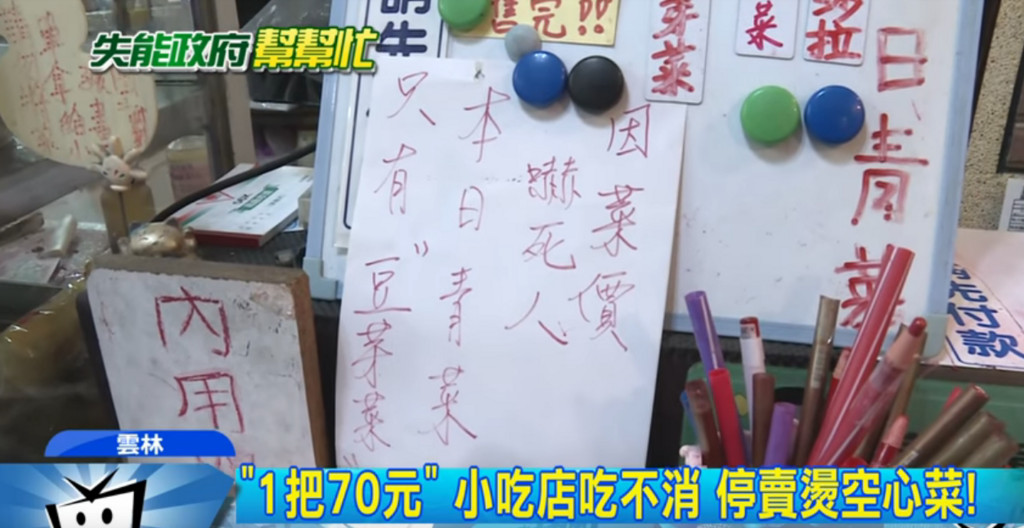 失能政府 幫幫忙
售完!!
芽菜
菜
日青菜
因菜價
嚇死人
本日青菜
只有"豆芽菜"
內用
付款
雲林
"1把70元" 小吃店吃不消 停賣燙空心菜!